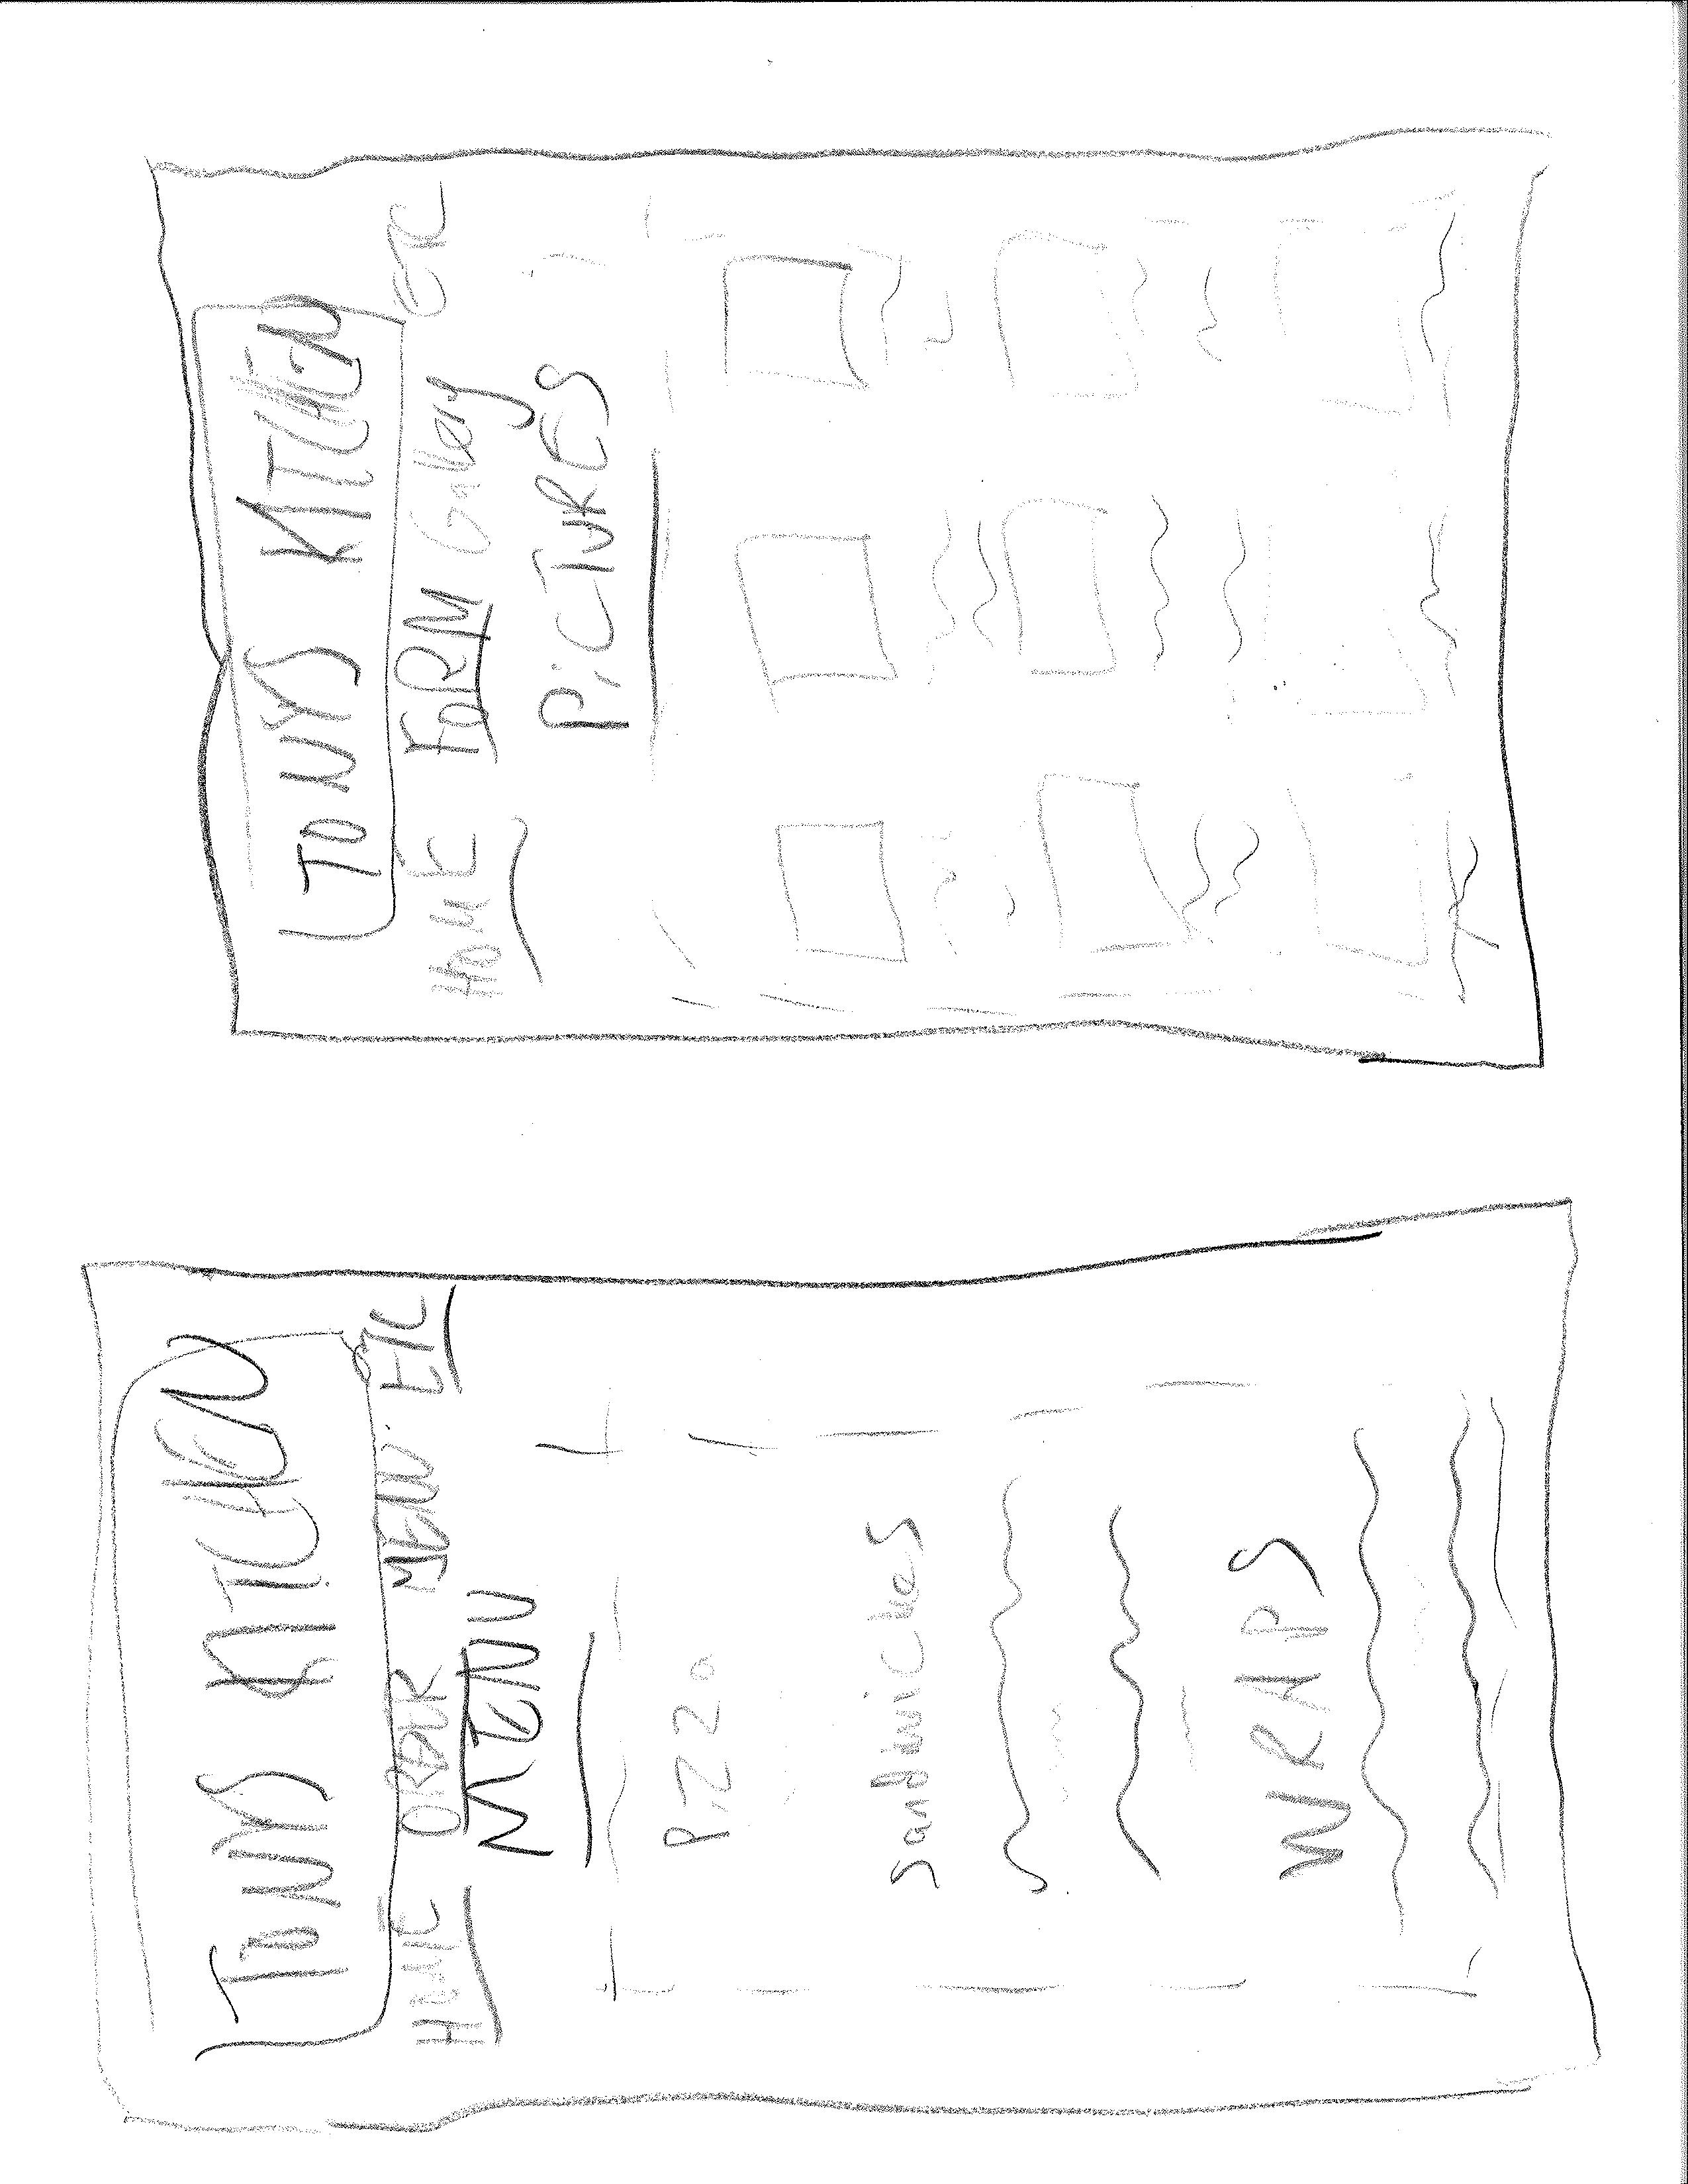 TONYS KITCHEN
HOME ORDER MENU ETC
MENU
Pizza
Sandwiches
WRAPS
TONYS KITCHEN
HOME FORM Gallery ETC
PICTURES